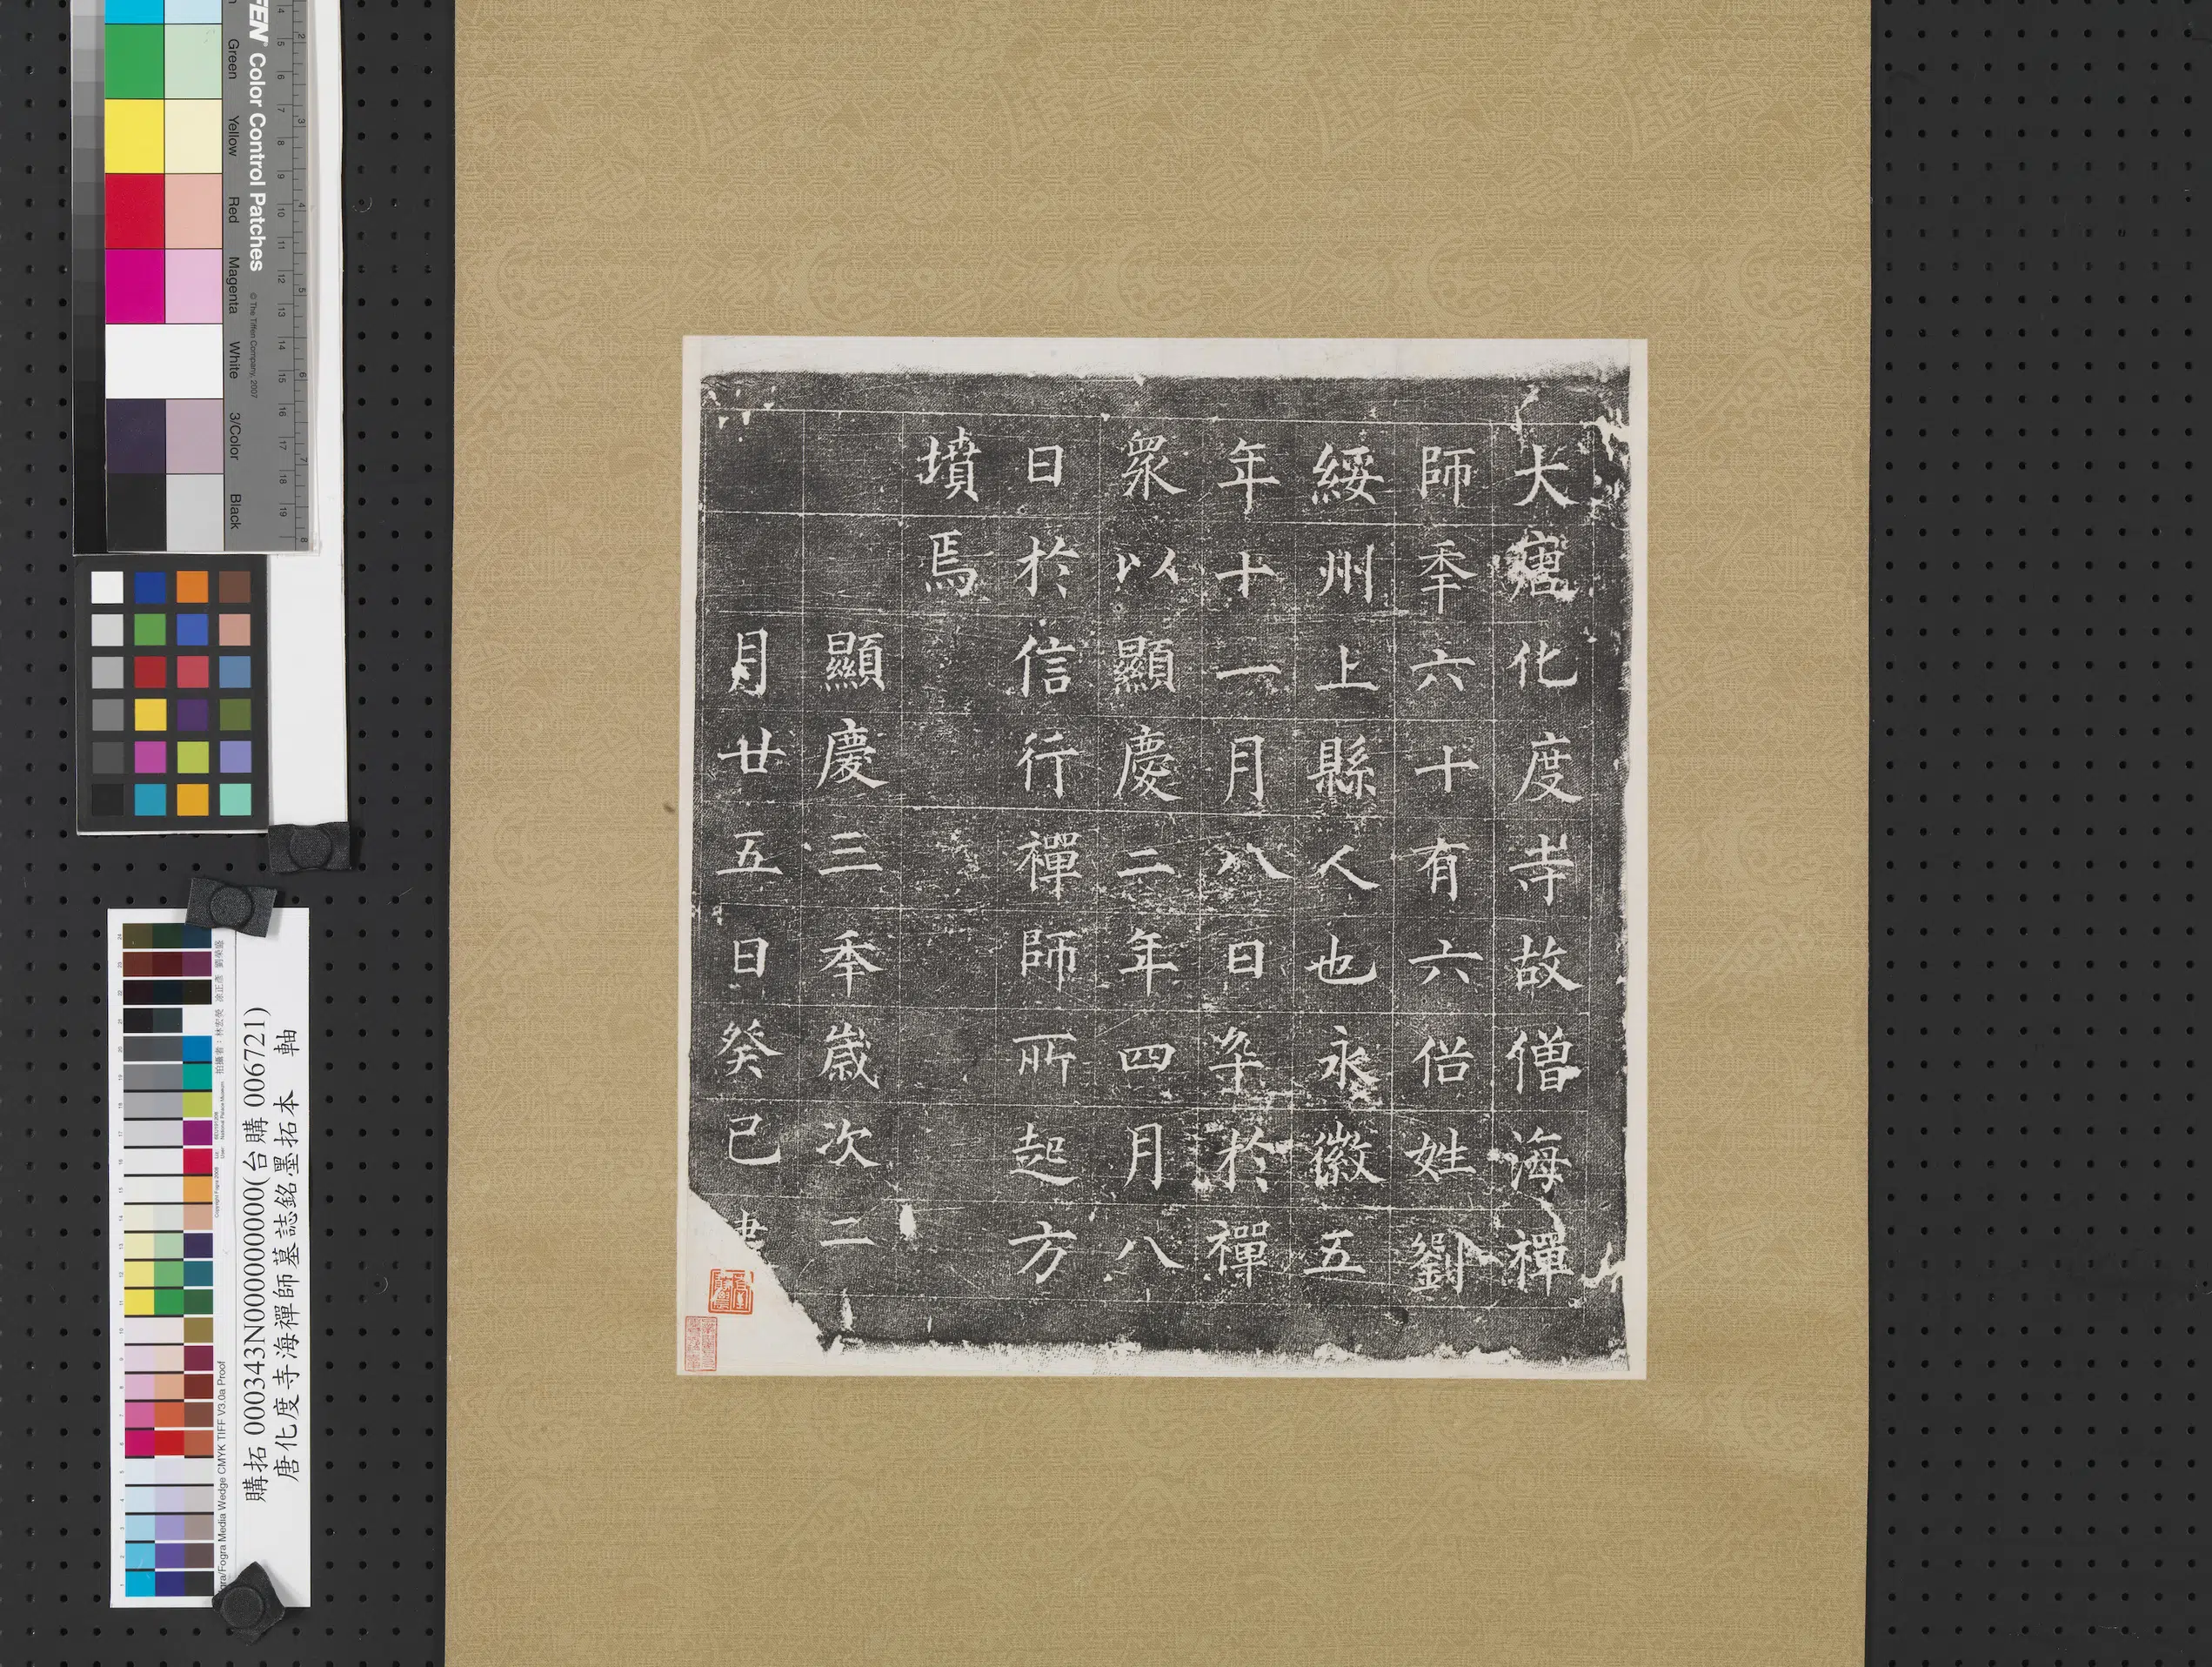 大唐化度寺故僧海禪
師秊六十有六俗姓劉
綏州上縣人也永徽五
年十一月八日卒於禪
眾以顯慶二年四月八
日於信行禪師所起方
墳焉
顯慶三秊歲次二
月廿五日癸巳
TIFFEN Color Control Patches
© The Tiffen Company, 2007
Green Yellow Red Magenta White 3/Color Black
購拓 000343N000000000(台購 006721)
唐化度寺海禪師墓誌銘墨拓本 軸
Fogra Media Wedge CMYK TIFF V3.0a Proof